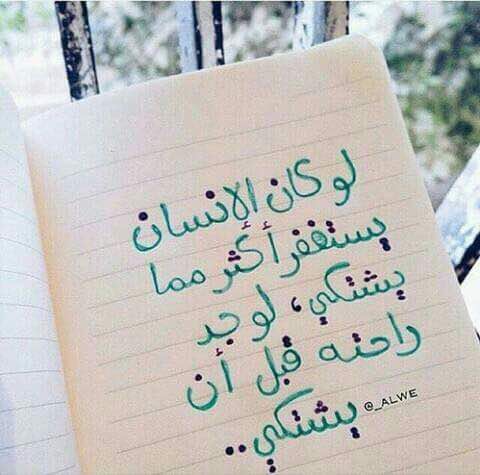 لو كان الإنسان
يستغفر أكثر مما
يشتكي، لوجد
راحته قبل أن
يشتكي..
@_ALWE